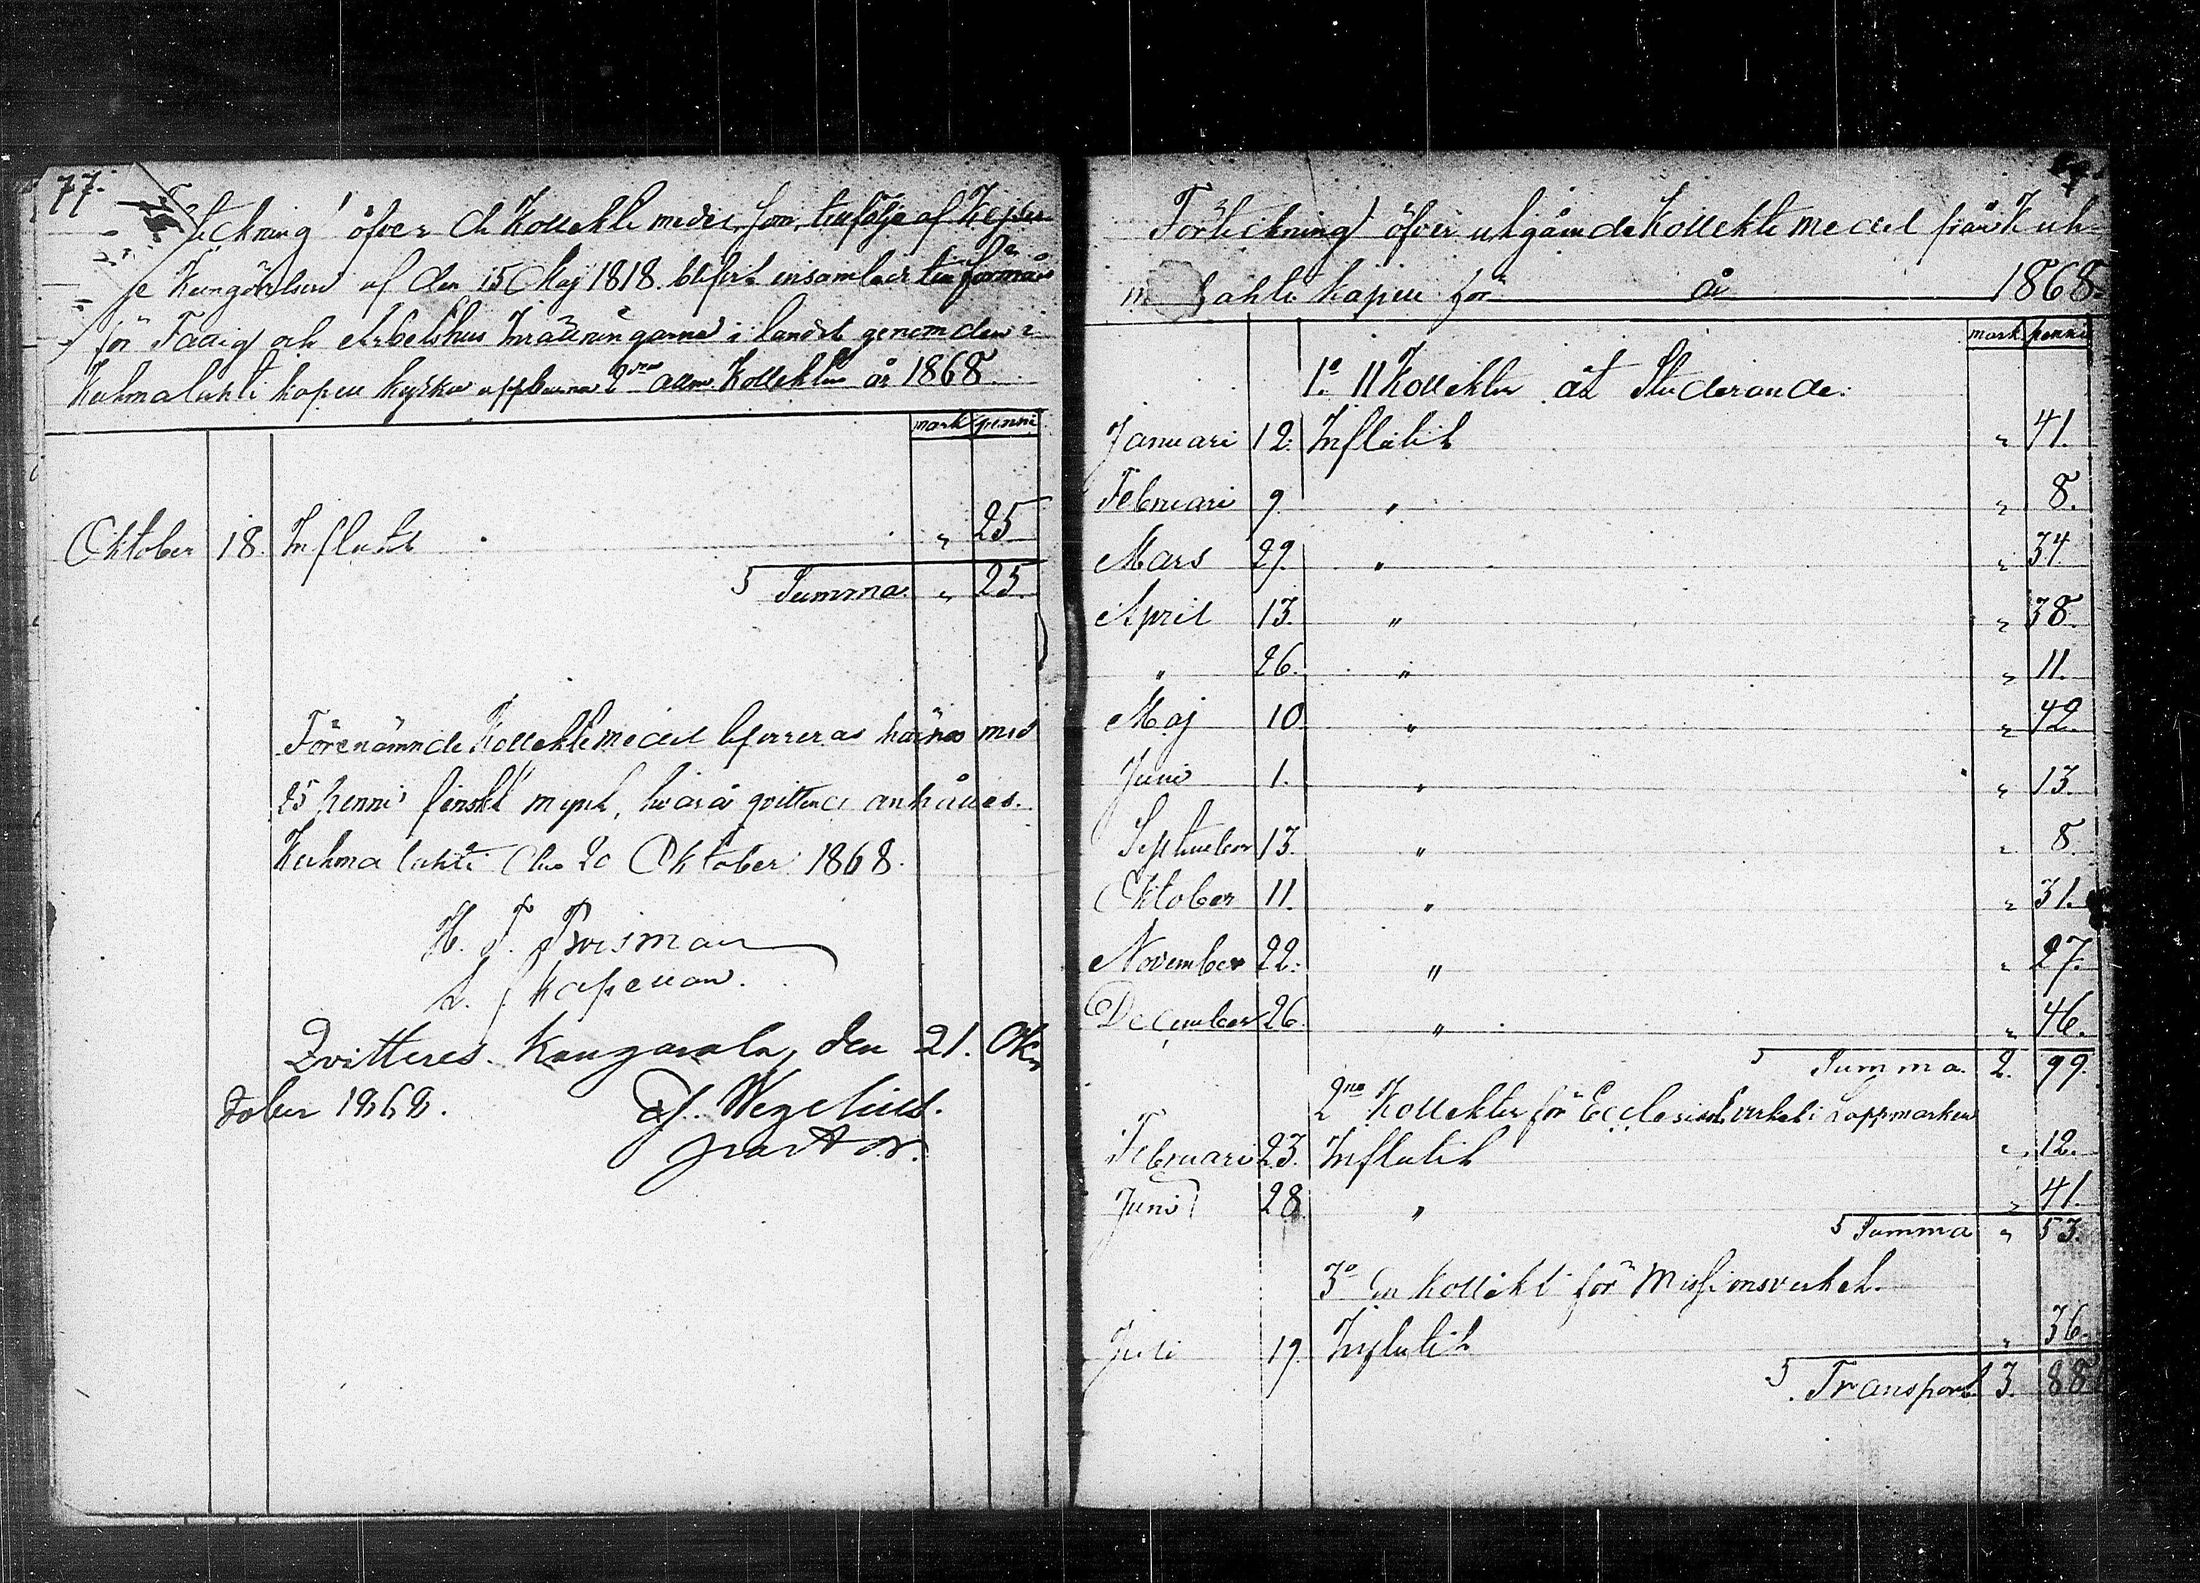 77.
Förteckning öfver de Kollektmedel, som, tillfölje af Kejser-
se Kungörelsen af den 15 Maj 1818. blifvit insamlade till förmån
för Fattig och Arbetshus Inrättningarna i landet genom den i
Kuhmalahti kapell kyrka uppburna 2dra allm. Kollekten år 1868.
mark penni
Oktober 18. Influtit " 25
S Summa " 25.
Förenämnde Kollektmedel leferreras härhos med
25 penni finskt mynt, hvarå qvittence anhålles.
Kuhmalahti den 20 Oktober 1868.
H. F.
L. kapellan.
Qvitteras. Kangasala, den 21. Ok-
tober 1868. Af. Wegelius.
pastor.
Förteckning öfver utgående Kollektmedel från Kuh-
m lahti kapell för år 1868.
mark penni
1o. 11 Kollekter åt Studerande:
Januari 12. Influtit " 41.
Februari 9. " " 8.
Mars 29. " " 34.
April 13. " " 38.
" 26. " " 11.
Maj 10. " " 42.
Juni 1. " " 13.
September 13. " " 8.
Oktober 11. " " 31.
November 22. " " 27.
December 26. " " 46.
S Summa 2. 99.
2ne Kollekter för Ecclesiastikverket i Lappmarken
Februari 23. Influtit " 12.
Juni 28. " " 41.
S Summa " 53.
3o En Kollekt för Missionsverket.
Juli 19. Influtit " 36.
S. Transport 3. 88.